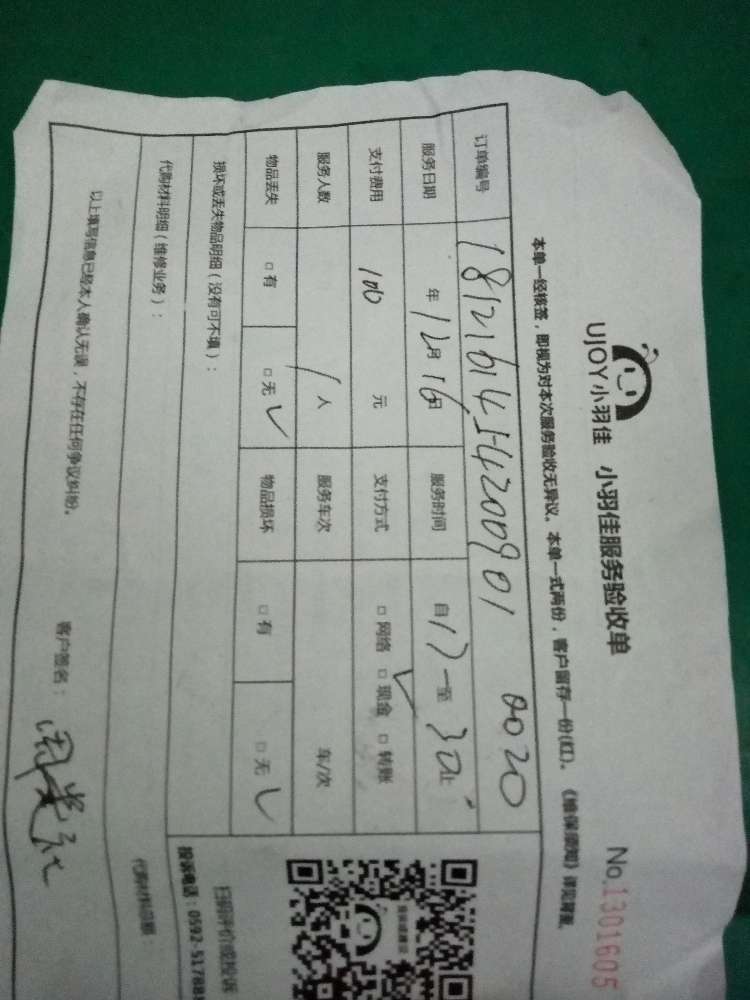 UJOY小羽佳 小羽佳服务验收单 No.1301605
本单一经核签，即视为对本次服务验收无异议。本单一式两份，客户留存一份(红)。《维保须知》详见背面。
订单编号 1812161454200901 0020
服务日期 年12月16日 服务时间 自17一至30止
支付费用 100元 支付方式 □网络 □现金 ✓ □转账
服务人数 1人 服务车次 车/次
物品丢失 □有 □无 ✓ 物品损坏 □有 □无 ✓
损坏或丢失物品明细（没有可不填）：
扫码评价或投诉
投诉电话：0592-51788
代购材料明细（维修业务）：
代购材料总额：
以上填写信息已经本人确认无误，不存在任何争议纠纷。 客户签名：